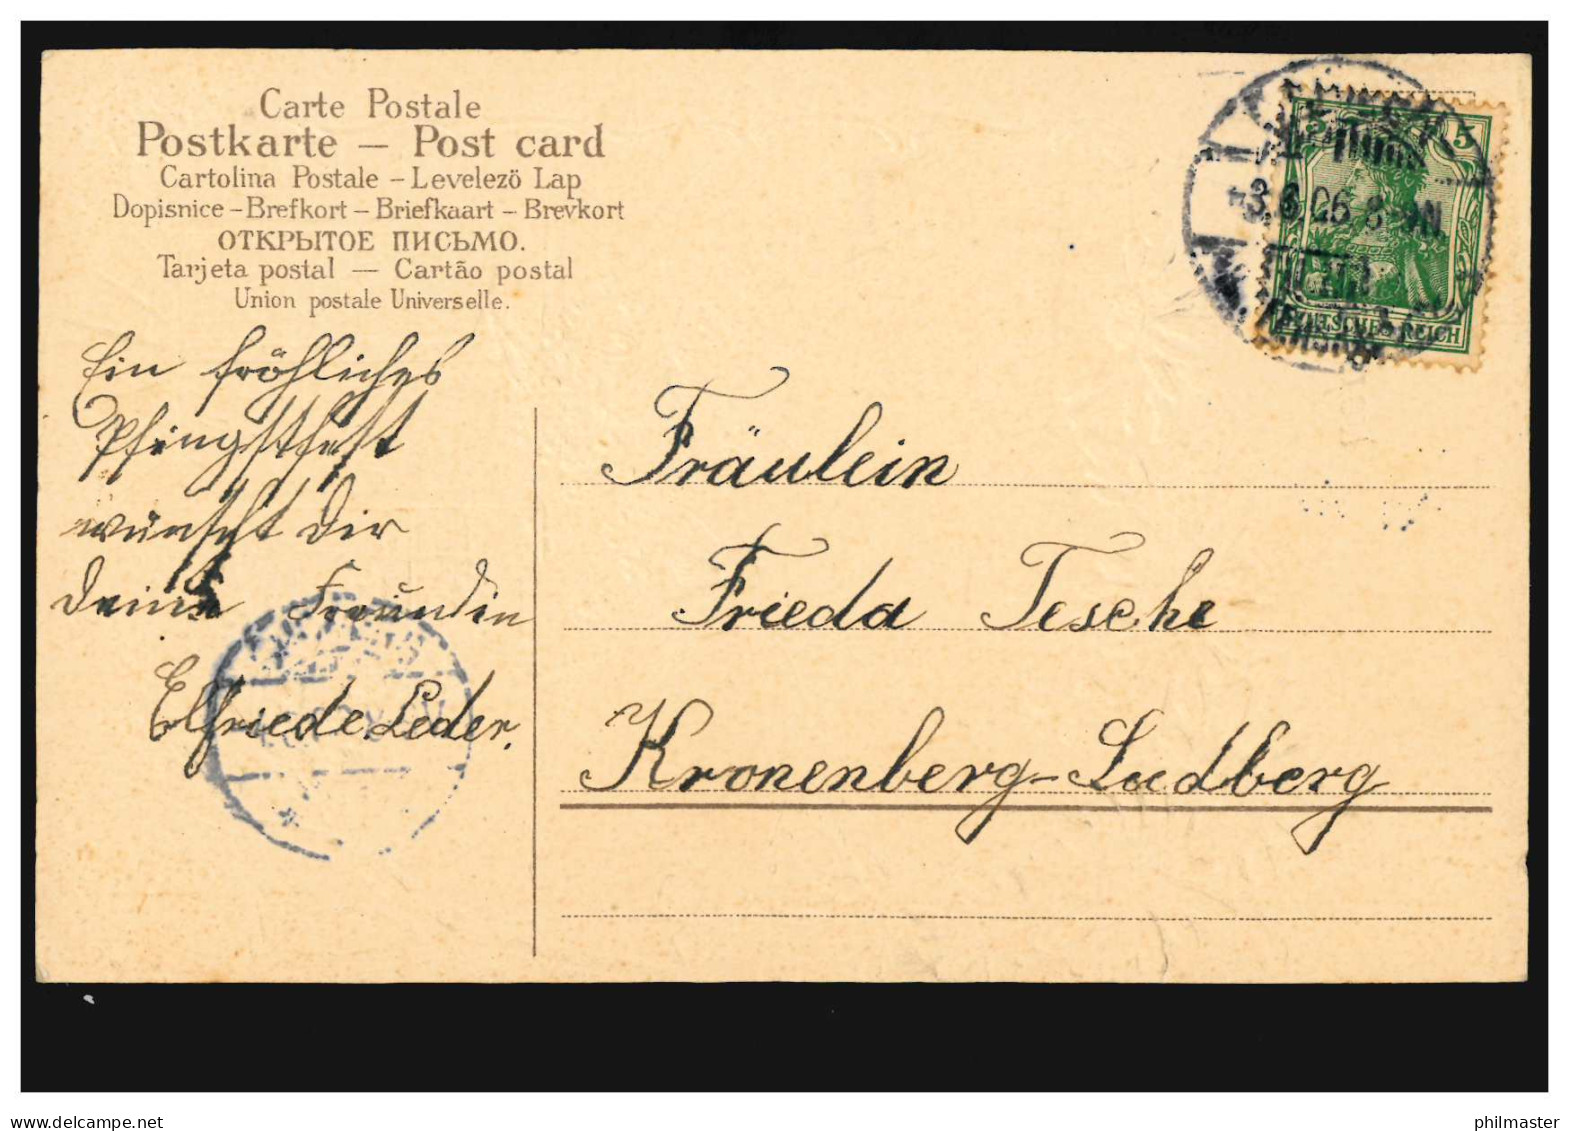 Carte Postale
Postkarte — Post card
Cartolina Postale – Levelezö Lap
Dopisnice – Brefkort – Briefkaart – Brevkort
ОТКРЫТОЕ ПИСЬМО.
Tarjeta postal — Cartão postal
Union postale Universelle.
Ein fröhliches
Pfingstfest
wünscht Dir
Deine Freundin
Elfriede Leder.
5
3.6.06 8-9N.
DEUTSCHES REICH
Fräulein
Frieda Tesche
Kronenberg-Sudberg
delcampe.net
philmaster